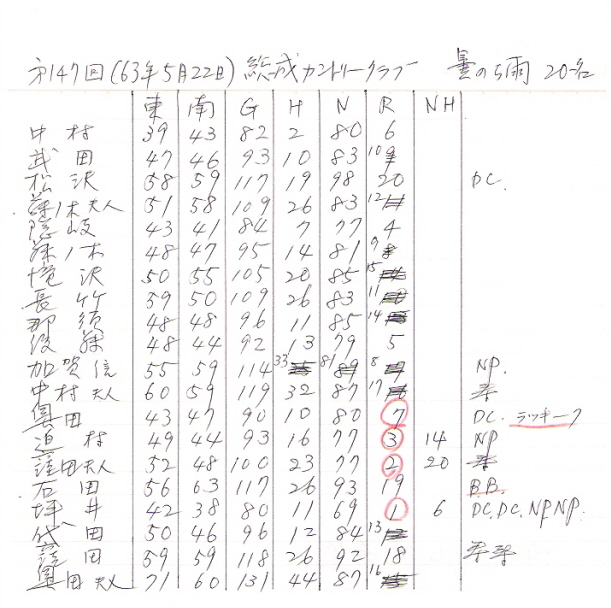 オ147回(63年5月22日) 総成カントリークラブ 曇のち雨 20名
東 南 G H N R NH
中村 39 43 82 2 80 6
武田 47 46 93 10 83 10
松沢 58 59 117 19 98 20 DC.
藤ノ木夫人 51 58 109 26 83 12
隠岐 43 41 84 7 77 4
藤ノ木 48 47 95 14 81 9
境沢 50 55 105 20 85 15
長竹 59 50 109 26 83 11
那須 48 48 96 11 85 14
後藤 48 44 92 13 79 5
加賀信 55 59 114 33 81 8 NP.
中村夫人 60 59 119 32 87 17
奥田 43 47 90 10 80 7 DC. ラッキーク
迫村 49 44 93 16 77 3 14 NP
窪田夫人 52 48 100 23 77 2 20
石田 56 63 117 26 93 19 B.B.
坪井 42 38 80 11 69 1 6 DC.DC.NP.NP.
代田 50 46 96 12 84 13
窪田 59 59 118 26 92 18
奥田夫人 71 60 131 44 87 16